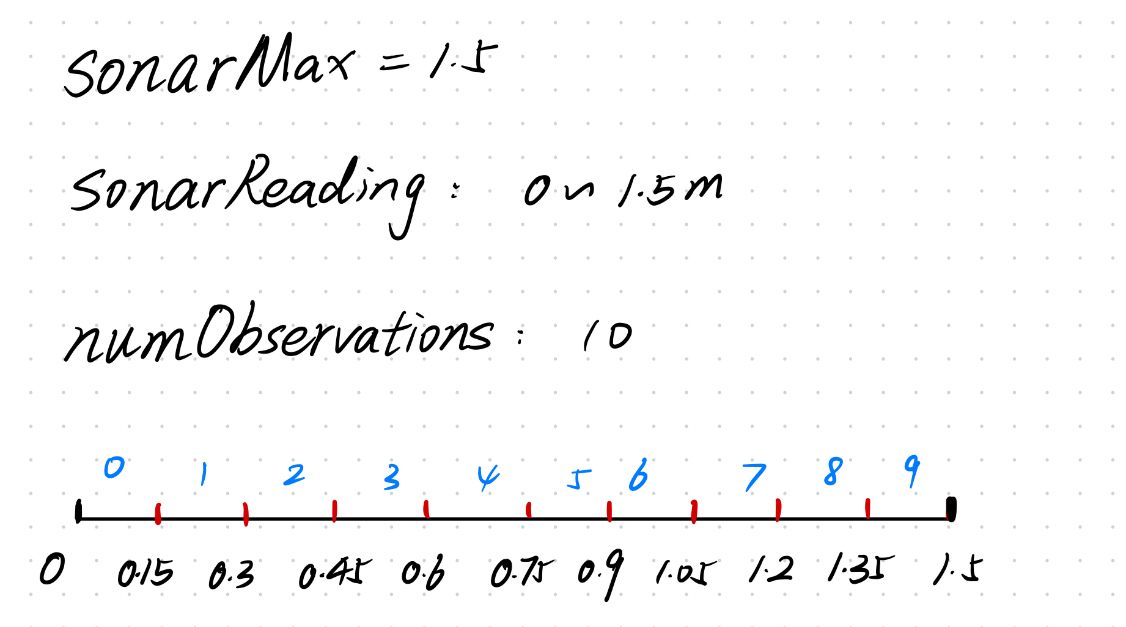 sonarMax = 1.5
sonarReading: 0 ~ 1.5m
numObservations: 10
0 1 2 3 4 5 6 7 8 9
0 0.15 0.3 0.45 0.6 0.75 0.9 1.05 1.2 1.35 1.5